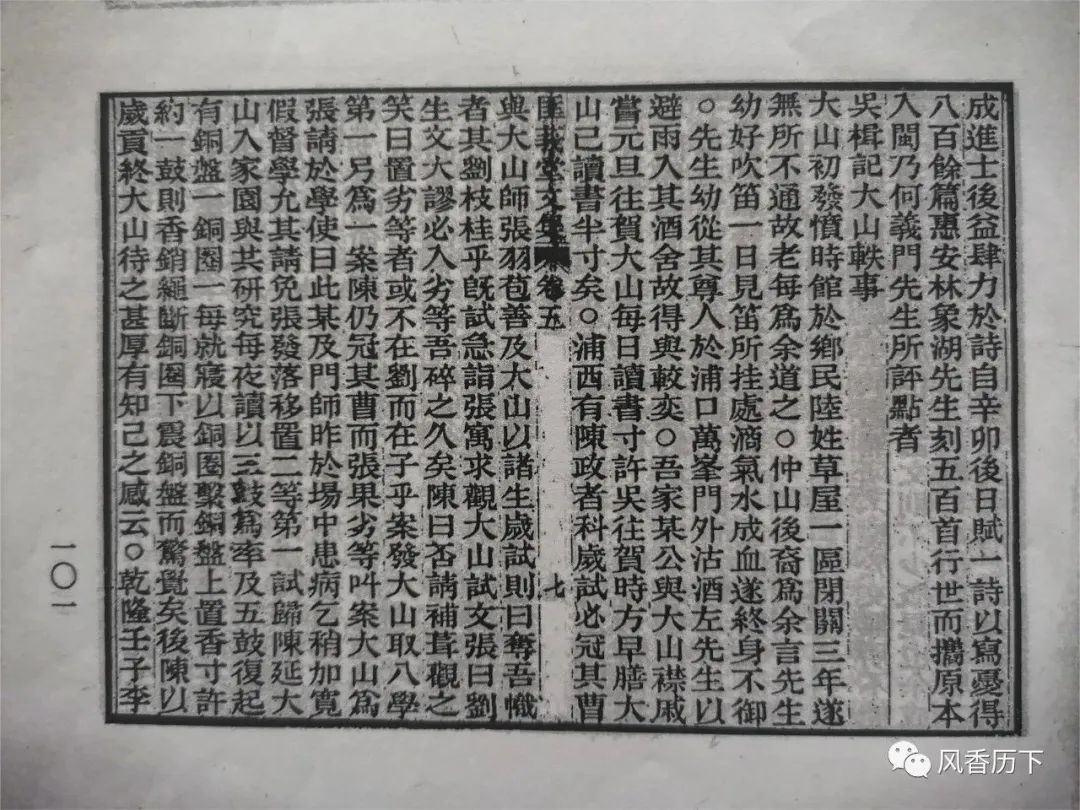 成進士後益肆力於詩自辛卯後日賦一詩以寫憂得
八百餘篇惠安林象湖先生刻五百首行世而攜原本
入閩乃何義門先生所評點者
吳楫記大山軼事
大山初發憤時館於鄉民陸姓草屋一區閉關三年遂
無所不通故老每爲余道之○仲山後裔爲余言先生
幼好吹笛一日見笛所挂處滴氣水成血遂終身不御
○先生幼從其尊人於浦口萬峯門外沽酒左先生以
避雨入其酒舍故得與較奕○吾家某公與大山襟戚
嘗元旦往賀大山每日讀書寸許吳往賀時方早膳大
山已讀書半寸矣○浦西有陳政者科歲試必冠其曹
堂文集 卷五 七
與大山師張羽苞善及大山以諸生歲試則曰奪吾幟
者其劉枝桂乎既試急詣張寓求觀大山試文張曰劉
生文大謬必入劣等吾碎之久矣陳曰否請補葺觀之
笑曰置劣等者或不在劉而在子乎案發大山取入學
第一另爲一案陳仍冠其曹而張果劣等叫案大山爲
張請於學使曰此某及門師昨於場中患病乞稍加寬
假督學允其請免張發落移置二等第一試歸陳延大
山入家園與共研究每夜讀以三鼓爲率及五鼓復起
有銅盤一銅圈一每就寢以銅圈繫銅盤上置香寸許
約一鼓則香銷繩斷銅圈下震銅盤而驚覺矣後陳以
歲貢終大山待之甚厚有知己之感云○乾隆壬子李
一〇一
风香历下